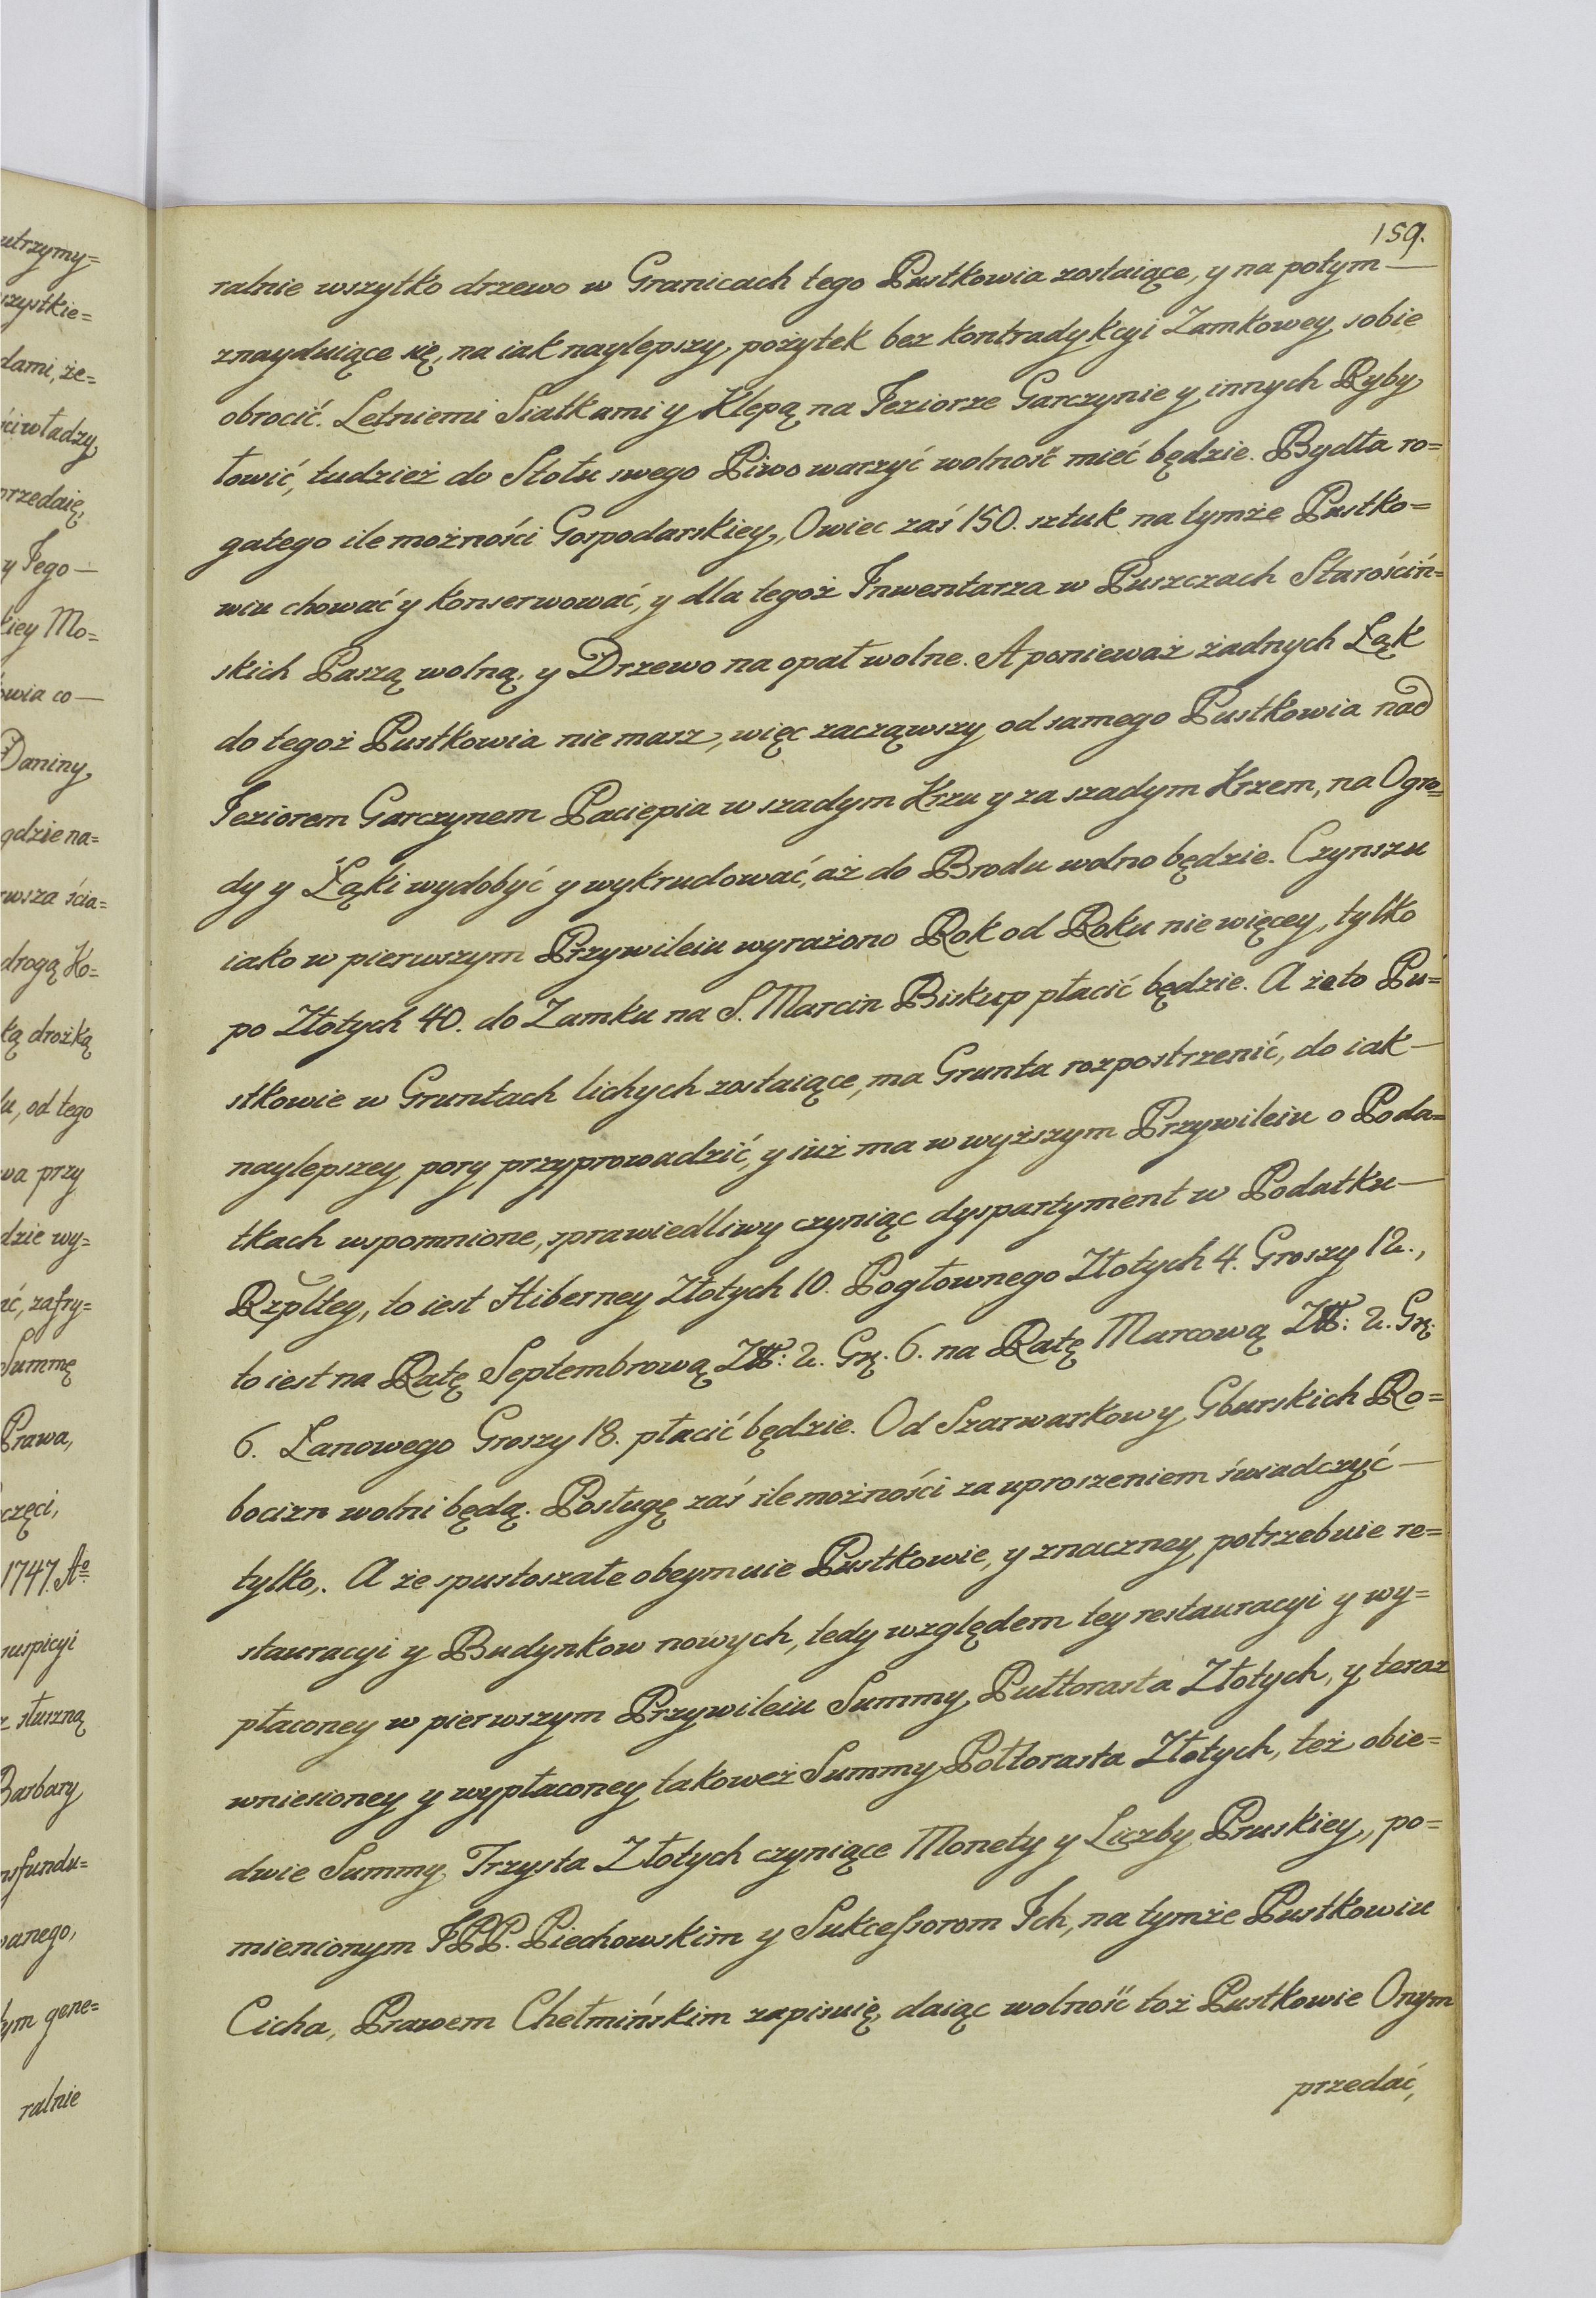 utrzymy=
szystkie=
dami, że=
ści władzy,
przedaię,
y Jego—
kiey Mo=
owia co—
Daniny,
gdzie na=
rwsza ścia=
drogą Ko=
ką drożką
lu, od tego
wa przy
dzie wy=
ić, zafry=
Summę
Prawa,
częci,
1747. Ao
uspicyi
z słuszną
Barbary
nsfundu=
wanego,
tym gene=
ralnie
159.
ralnie wszytko drzewo w Granicach tego Pustkowia zostaiące, y na potym—
znayduiące się, na iak naylepszy, pożytek bez kontradykcyi Zamkowey, sobie
obrocić. Letniemi Siatkami y Klepą na Jeziorze Garczynie y innych Ryby,
łowić, tudzież do Stołu swego Piwo warzyć wolność mieć będzie. Bydła ro=
gatego ile możności Gospodarskiey, Owiec zaś 150. sztuk na tymże Pustko=
wiu chować y konserwować, y dla tegoż Inwentarza w Puszczach Starościń=
skich Paszą wolną, y Drzewo na opał wolne. A ponieważ żadnych Łąk
do tegoż Pustkowia nie masz, więc zacząwszy od samego Pustkowia nad
Jeziorem Garczynem Paciepia w szadym Krzu y za szadym Krzem, na Ogro=
dy y Łąki wydobyć y wykrudować, aż do Brodu wolno będzie. Czynszu
iako w pierwszym Przywileiu wyrażono Rok od Roku nie więcey, tylko
po Złotych 40. do Zamku na S. Marcin Biskup płacić będzie. A że to Pu=
stkowie w Gruntach lichych zostaiące, ma Grunta rozpostrzenić, do iak—
naylepszey pory przyprowadzić, y iuż ma w wyższym Przywileiu o Poda=
tkach wspomnione, sprawiedliwy czyniąc dyspartyment w Podatku—
Rzpltey, to iest Hiberney Złotych 10. Pogłownego Złotych 4. Groszy 12.,
to iest na Ratę Septembrową Zł: 2. Gr. 6. na Ratę Marcową Zł: 2. Gr.
6. Łanowego Groszy 18. płacić będzie. Od Szarwarkow y Gburskich Ro=
bocizn wolni będą. Posługę zaś ile możności za uproszeniem świadczyć—
tylko,. A że spustoszałe obeymuie Pustkowie, y znaczney potrzebuie re=
stauracyi y Budynkow nowych, tedy względem tey restauracyi y wy=
płaconey w pierwszym Przywileiu Summy, Pułtorasta Złotych, y teraz
wniesioney y wypłaconey takoweż Summy Połtorasta Złotych, też obie=
dwie Summy, Trzysta Złotych czyniące Monety y Liczby, Pruskiey, po=
mienionym JPP. Piechowskim y Sukcessorom Ich, na tymże Pustkowiu
Cicha, Prawem Chełmińskim zapisuię, daiąc wolność toż Pustkowie Onym
przedać,